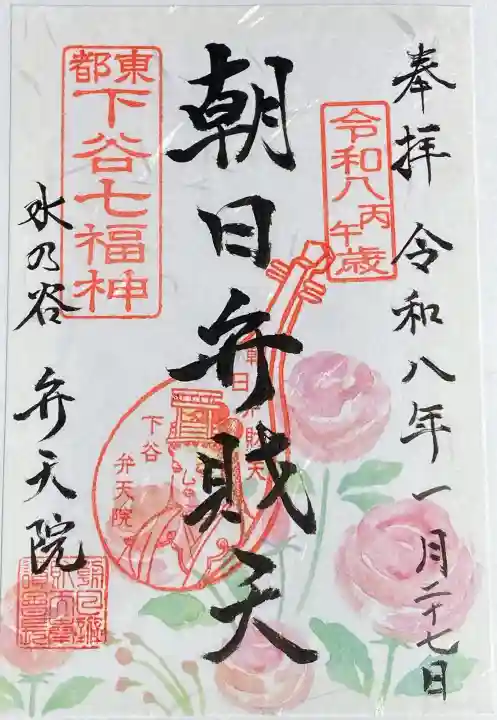 奉拝 令和八年一月二十七日
令和八丙午歳
朝日弁財天
朝日弁財天
下谷
弁天院
東都
下谷七福神
水の谷 弁天院